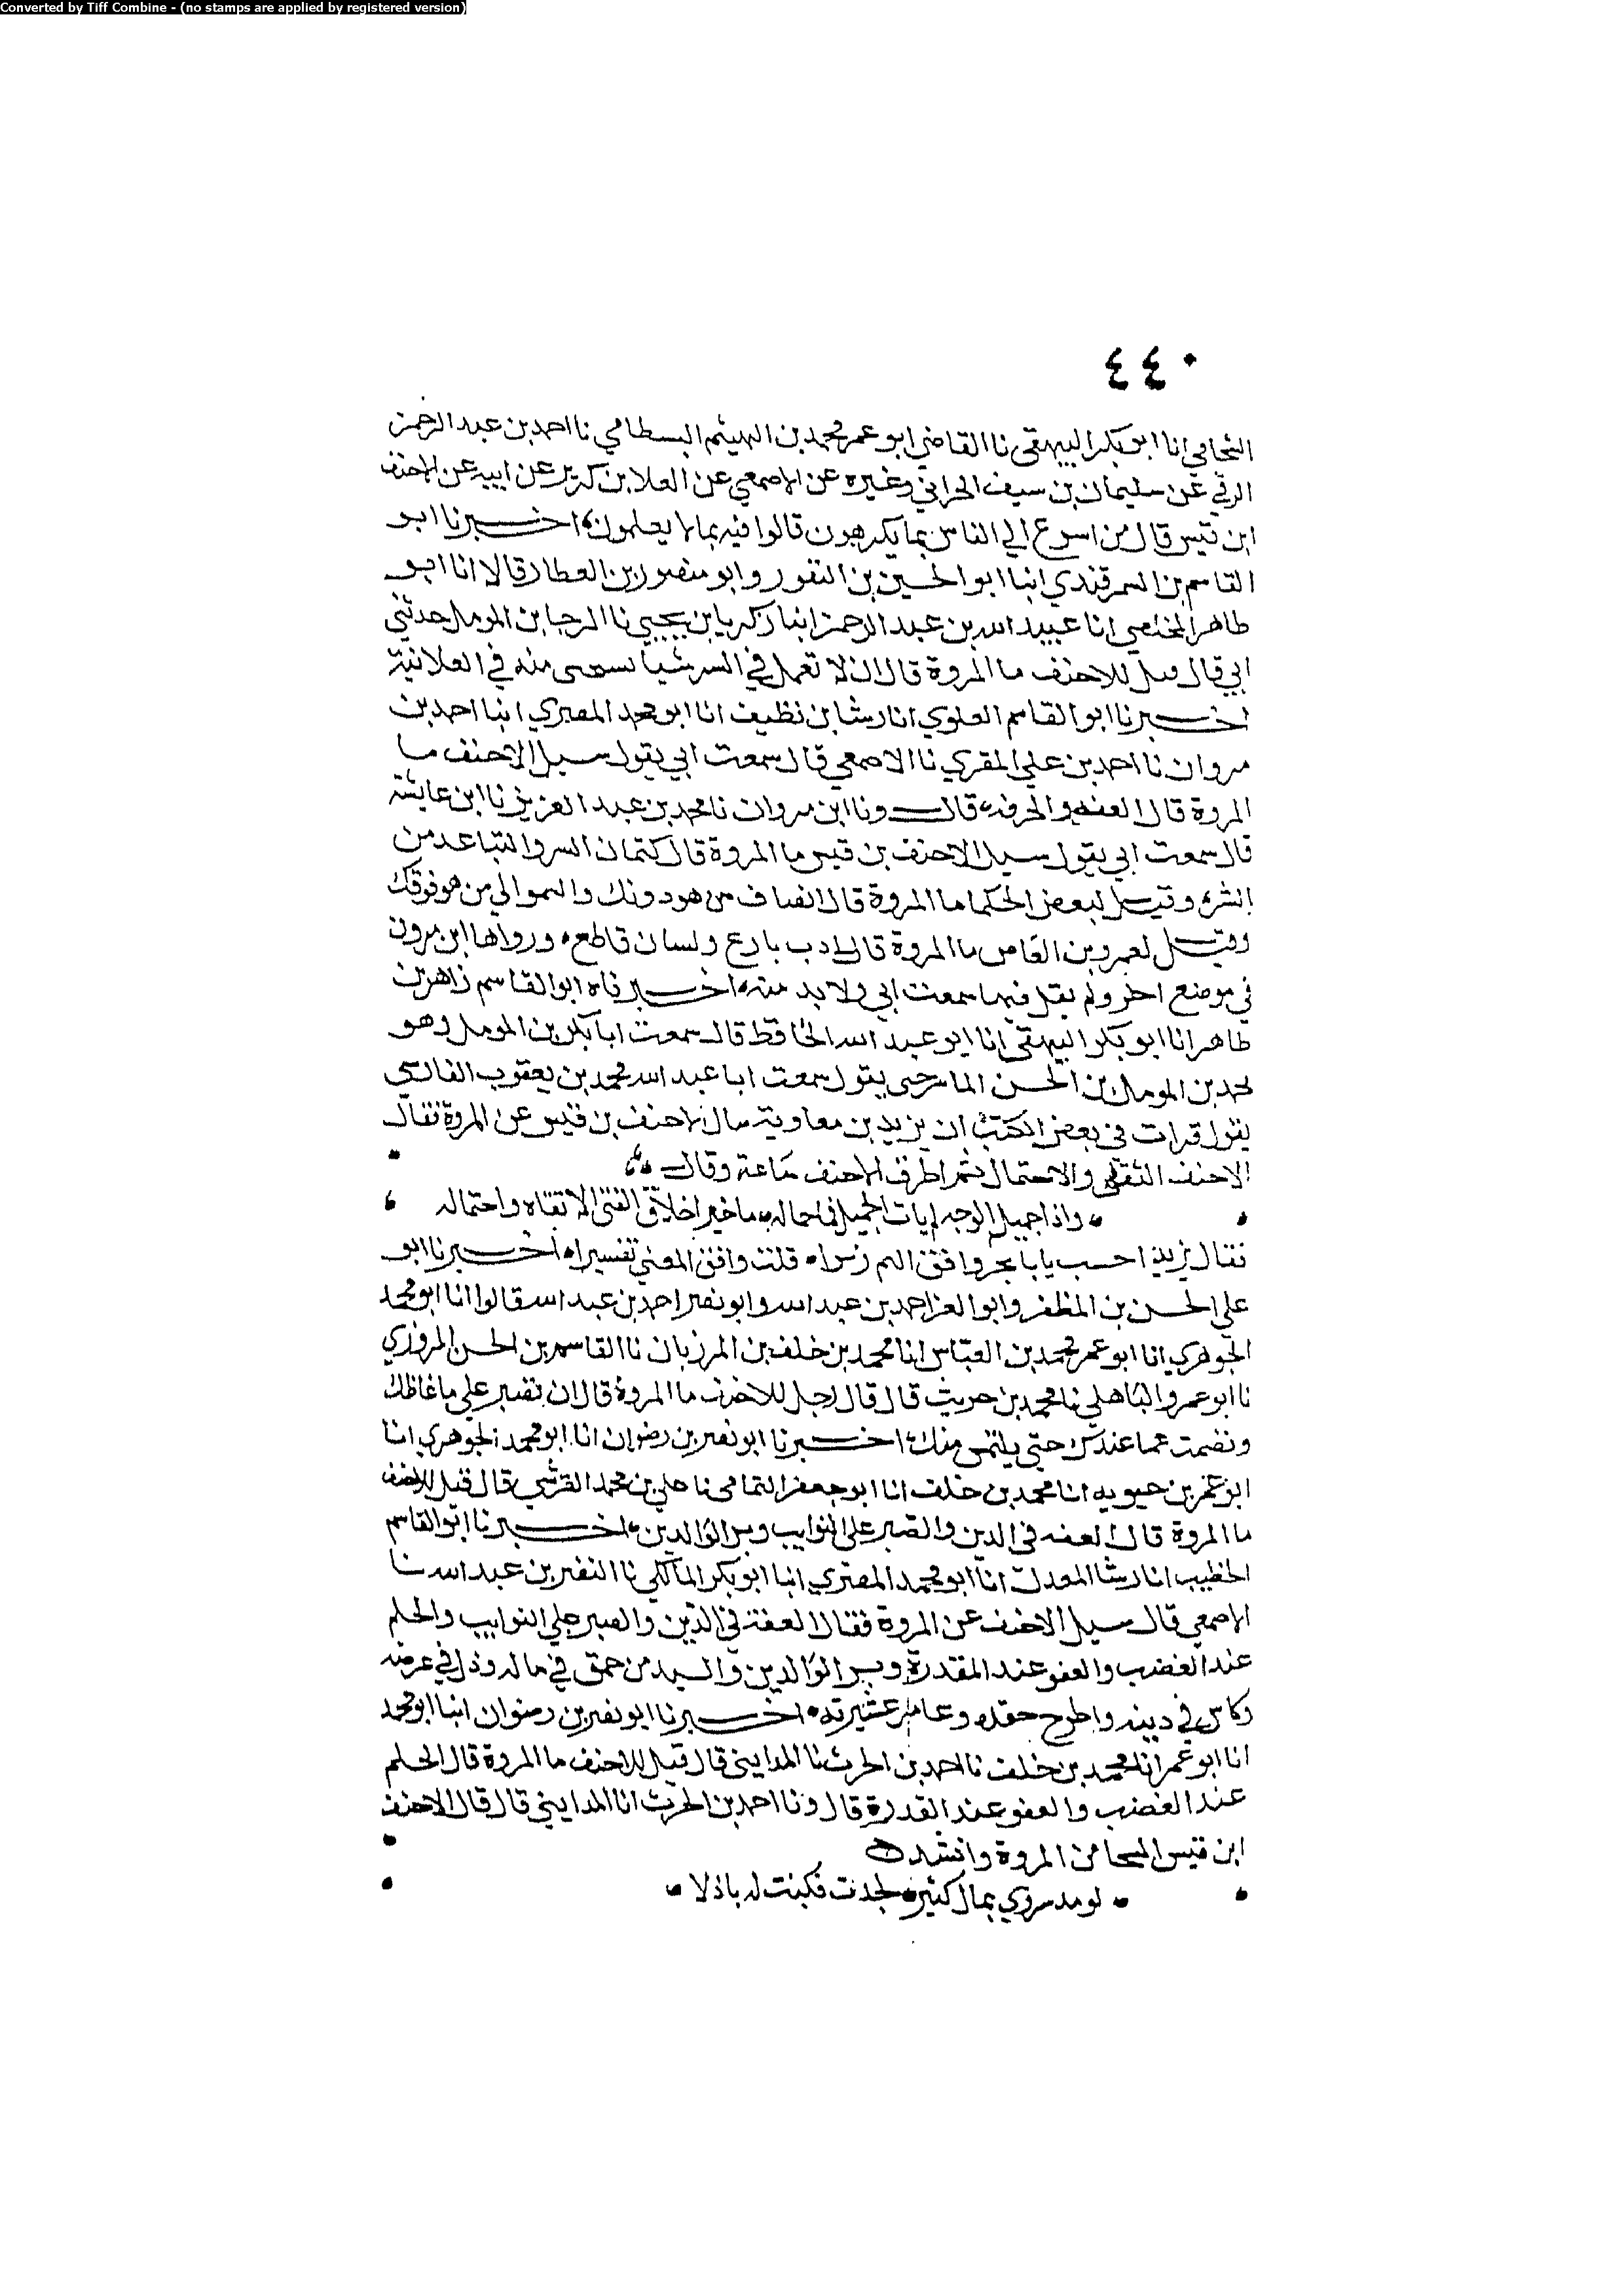 Converted by Tiff Combine - (no stamps are applied by registered version)
٤٤٠
الشحامي انا ابو بكر البيهقي نا القاضي ابو عمر محمد بن الهيثم البسطامي نا احمد بن عبد الرحمن
الرقي عن سليمان بن سيف الحراني وغيره عن الاصمعي عن العلا بن كرير عن ابيه عن الاحنف
ابن قيس قال من اسرع الي الناس بما يكرهون قالوا فيه بما لا يعلمون اخبرنا ابو
القاسم بن السمرقندي انبا ابو الحسين بن النقور وابو منصور بن العطار قالا انا ابو
طاهر المخلص انا عبيد الله بن عبد الرحمن انبا زكريا بن يحيي نا المرجا بن المومل حدثني
ابي قال قيل للاحنف ما المروة قال ان لا تعمل في السر شيا منه في العلانية
اخبرنا ابو القاسم العلوي انا رشا بن نظيف انا ابو محمد المصري انبا احمد بن
مروان نا احمد بن علي المقري نا الاصمعي قال سمعت ابي يقول سيل الاحنف ما
المروة قال العفه والحرفه قال ونا ابن مروان نا محمد بن عبد العزيز نا ابن عايشة
قال سمعت ابي يقول سيل الاحنف بن قيس ما المروة قال كتمان السر والتباعد من
الشر وقيل لبعض الحكما ما المروة قال انصاف من هو دونك والسمو الي من هو فوقك
وقيل لعمرو بن العاص ما المروة قال ادب بارع ولسان قاطع ورواها ابن مرون
في موضع اخر ولم يقل فيها سمعت ابي ولا بد منه اخبرناه ابو القاسم زاهر بن
طاهر انا ابو بكر البيهقي انا ابو عبد الله الحافظ قال سمعت ابا بكر بن المومل وهو
محمد بن المومل بن الحسن الماسرجسي يقول سمعت ابا عبد الله محمد بن يعقوب الفارسي
يقول قرات في بعض الكتب ان يزيد بن معاوية سال الاحنف بن قيس عن المروة فقال
الاحنف التقى والاحتمال ثم اطرق الاحنف ساعة وقال
واذا جميل الوجه لم يات الجميل فما جماله ما خير اخلاق الفتى الا تقاه واحتماله
فقال يزيد احسب يا با بحر وافق اليم زيرا قلت وافق المعني تفسيرا اخبرنا ابو
علي الحسن بن المظفر وابو العز احمد بن عبد الله وابو نصر احمد بن عبد الله قالوا انا ابو محمد
الجوهري انا ابو عمر محمد بن العباس انا محمد بن خلف بن المرزبان نا القاسم بن الحسن المروزي
نا ابو عمرو الباهلي نا محمد بن حريث قال قال رجل للاحنف ما المروة قال ان تصبر علي ما غاظك
وتصمت عما عندك حتي يلتمس منك اخبرنا ابو نصر بن رضوان انا ابو محمد الجوهري انا
ابو عمر بن حيويه انا محمد بن خلف انا ابو جعفر نا علي بن محمد القرشي قال قيل للاحنف
ما المروة قال العفه في الدين والصبر علي النوايب وبر الوالدين اخبرنا ابو القاسم
الخطيب انا رشا المعدل انا ابو محمد المصري انبا ابو بكر المالكي نا النضر بن عبد الله نا
الاصمعي قال سيل الاحنف عن المروة فقال العفة في الدين والصبر علي النوايب والحلم
عند الغضب والعفو عند المقدرة وبر الوالدين والسيد من حمق في ماله وذل في عرضه
وكاس في دينه واطرح حقده وعامل عشيرته اخبرنا ابو نصر بن رضوان انبا ابو محمد
انا ابو عمر انا محمد بن خلف نا احمد بن الحرث نا المدايني قال قيل للاحنف ما المروة قال الحلم
عند الغضب والعفو عند القدرة قال ونا احمد بن الحرث انا المدايني قال قال الاحنف
ابن قيس السخا من المروة وانشد
لو مد سروي بمال كثير لجدت فكنت له باذلا